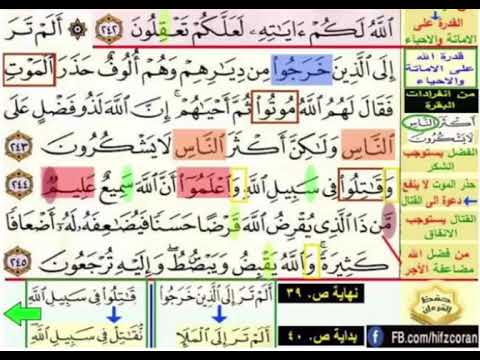 ٱللَّهُ لَكُمْ ءَايَٰتِهِۦ لَعَلَّكُمْ تَعْقِلُونَ ٢٤٢ ۞ أَلَمْ تَرَ
إِلَى ٱلَّذِينَ خَرَجُوا۟ مِن دِيَٰرِهِمْ وَهُمْ أُلُوفٌ حَذَرَ ٱلْمَوْتِ
فَقَالَ لَهُمُ ٱللَّهُ مُوتُوا۟ ثُمَّ أَحْيَٰهُمْ ۚ إِنَّ ٱللَّهَ لَذُو فَضْلٍ عَلَى
ٱلنَّاسِ وَلَٰكِنَّ أَكْثَرَ ٱلنَّاسِ لَا يَشْكُرُونَ ٢٤٣
وَقَٰتِلُوا۟ فِى سَبِيلِ ٱللَّهِ وَٱعْلَمُوٓا۟ أَنَّ ٱللَّهَ سَمِيعٌ عَلِيمٌ ٢٤٤
مَّن ذَا ٱلَّذِى يُقْرِضُ ٱللَّهَ قَرْضًا حَسَنًا فَيُضَٰعِفَهُۥ لَهُۥٓ أَضْعَافًا
كَثِيرَةً ۚ وَٱللَّهُ يَقْبِضُ وَيَبْصُۜطُ وَإِلَيْهِ تُرْجَعُونَ ٢٤٥
القدرة على
الاماتة والاحياء
قدرة الله
على الاماتة
والاحياء
من انفرادات
البقرة
أَكْثَرَ ٱلنَّاسِ
لَا يَشْكُرُونَ
الفضل يستوجب
الشكر
حذر الموت لا ينفع
دعوة الى القتال
القتال يستوجب
الانفاق
من فضل الله
مضاعفة الأجر
قَٰتِلُوا۟ فِى سَبِيلِ ٱللَّهِ
نُّقَٰتِلْ فِى سَبِيلِ ٱللَّهِ
أَلَمْ تَرَ إِلَى ٱلَّذِينَ خَرَجُوا۟
أَلَمْ تَرَ إِلَى ٱلْمَلَإِ
نهاية ص. ٣٩
بداية ص. ٤٠
حفظ
القرءان
FB.com/hifzcoran